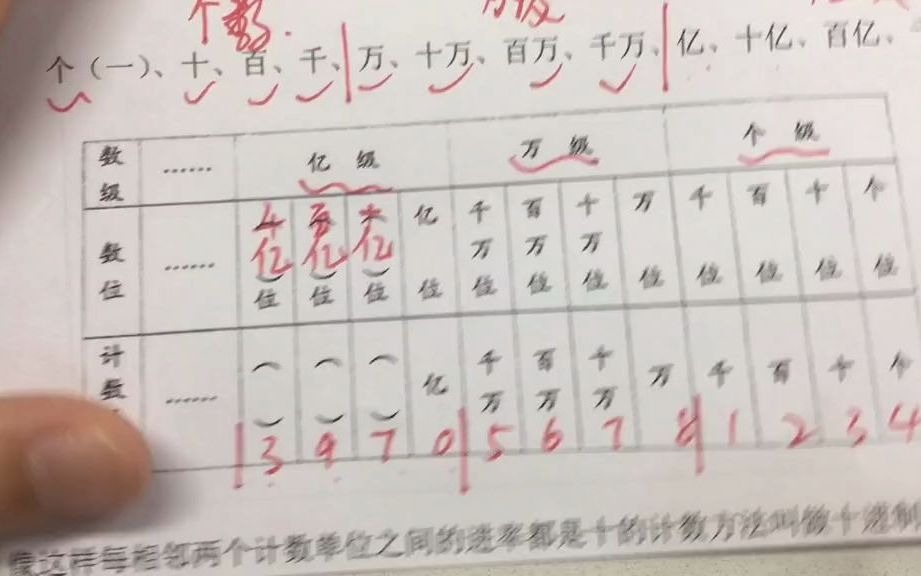 个数.
个（一）、十、百、千、万、十万、百万、千万、亿、十亿、百亿、
数级 …… 亿级 万级 个级
数位 …… 千亿位 百亿位 十亿位 亿位 千万位 百万位 十万位 万位 千位 百位 十位 个位
计数 …… （ ） （ ） （ ） 亿 千万 百万 十万 万 千 百 十 个
3 9 7 0 5 6 7 8 1 2 3 4
像这样每相邻两个计数单位之间的进率都是十的计数方法叫做十进制